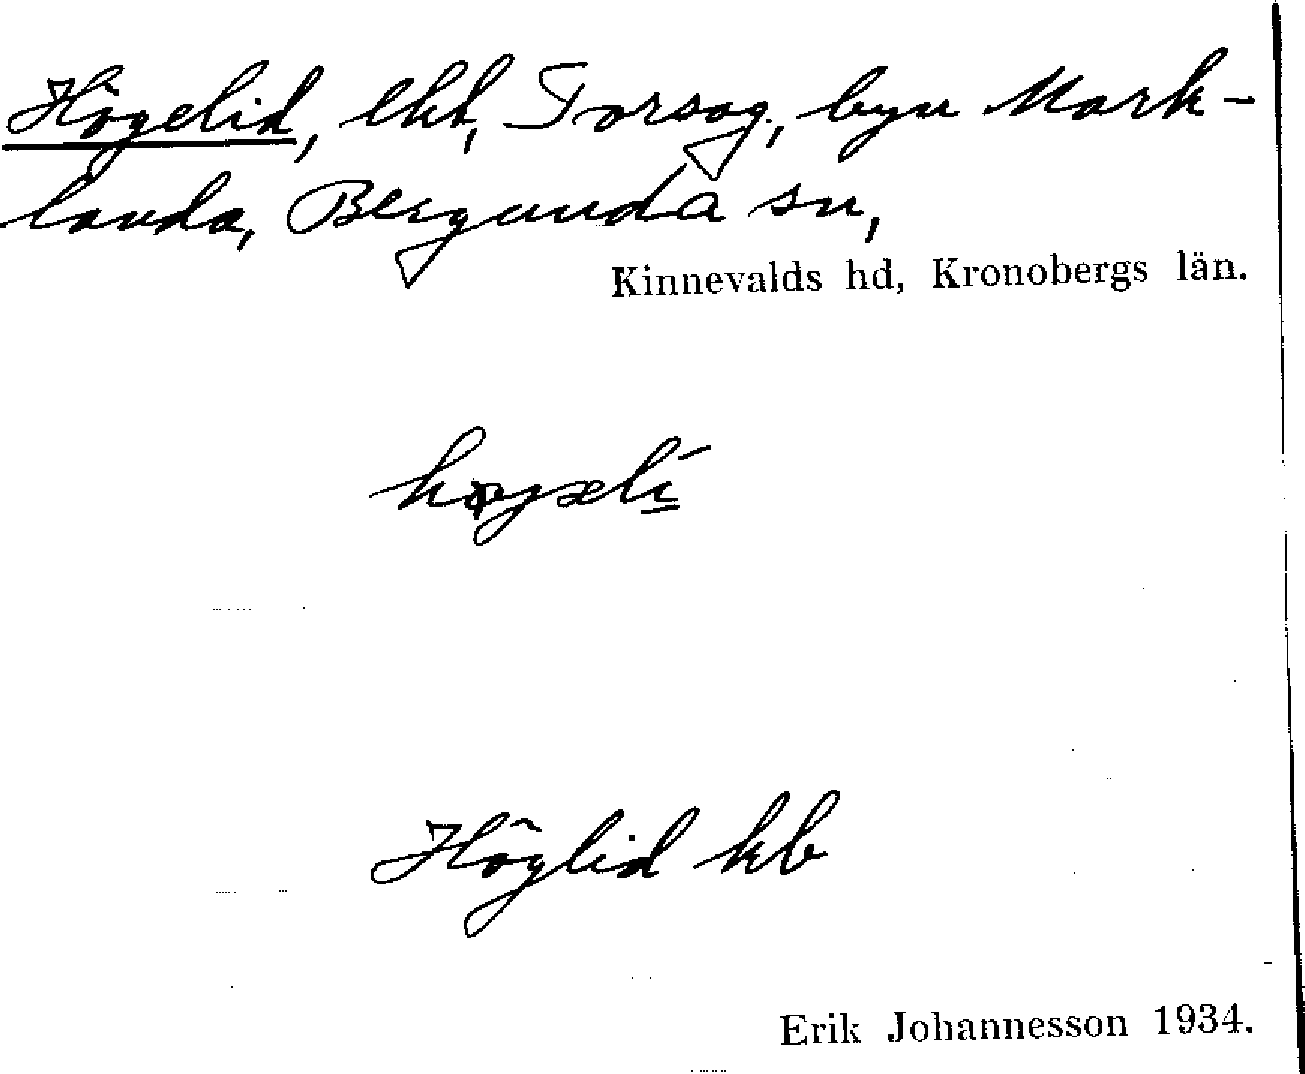 Högelid, lht, Torsag., byn Mark-
landa, Bergunda sn,
Kinnevalds hd, Kronobergs län.
Höglid kb
Erik Johannesson 1934.